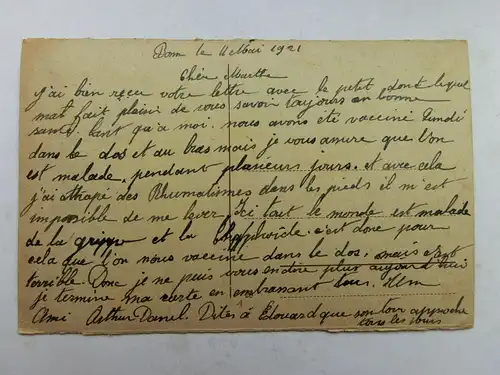 Dom le 11 Mai 1921
Chère Marthe
J'ai bien reçu votre lettre avec le petit dont lequel
mat fait plaisir de vous savoir toujours en bonne
santé. tant qu'a moi. nous avons été vacciné Lundi
dans le dos et au bras mais je vous assure que l'on
est malade. pendant plusieurs jours. et avec cela
j'ai attrapé des Rhumatismes dans les pieds il m'est
imposible de me lever. Ici tout le monde est malade
de la grippe et la c'est donc pour
cela que l'on nous vaccine dans le dos. mais s'est
terrible. Donc je ne puis vous en dire plus aujourd'hui
je termine ma carte en embrassant tous.
Ami Arthur Danel. Dites à Edouard que son tour approche
tous les jours